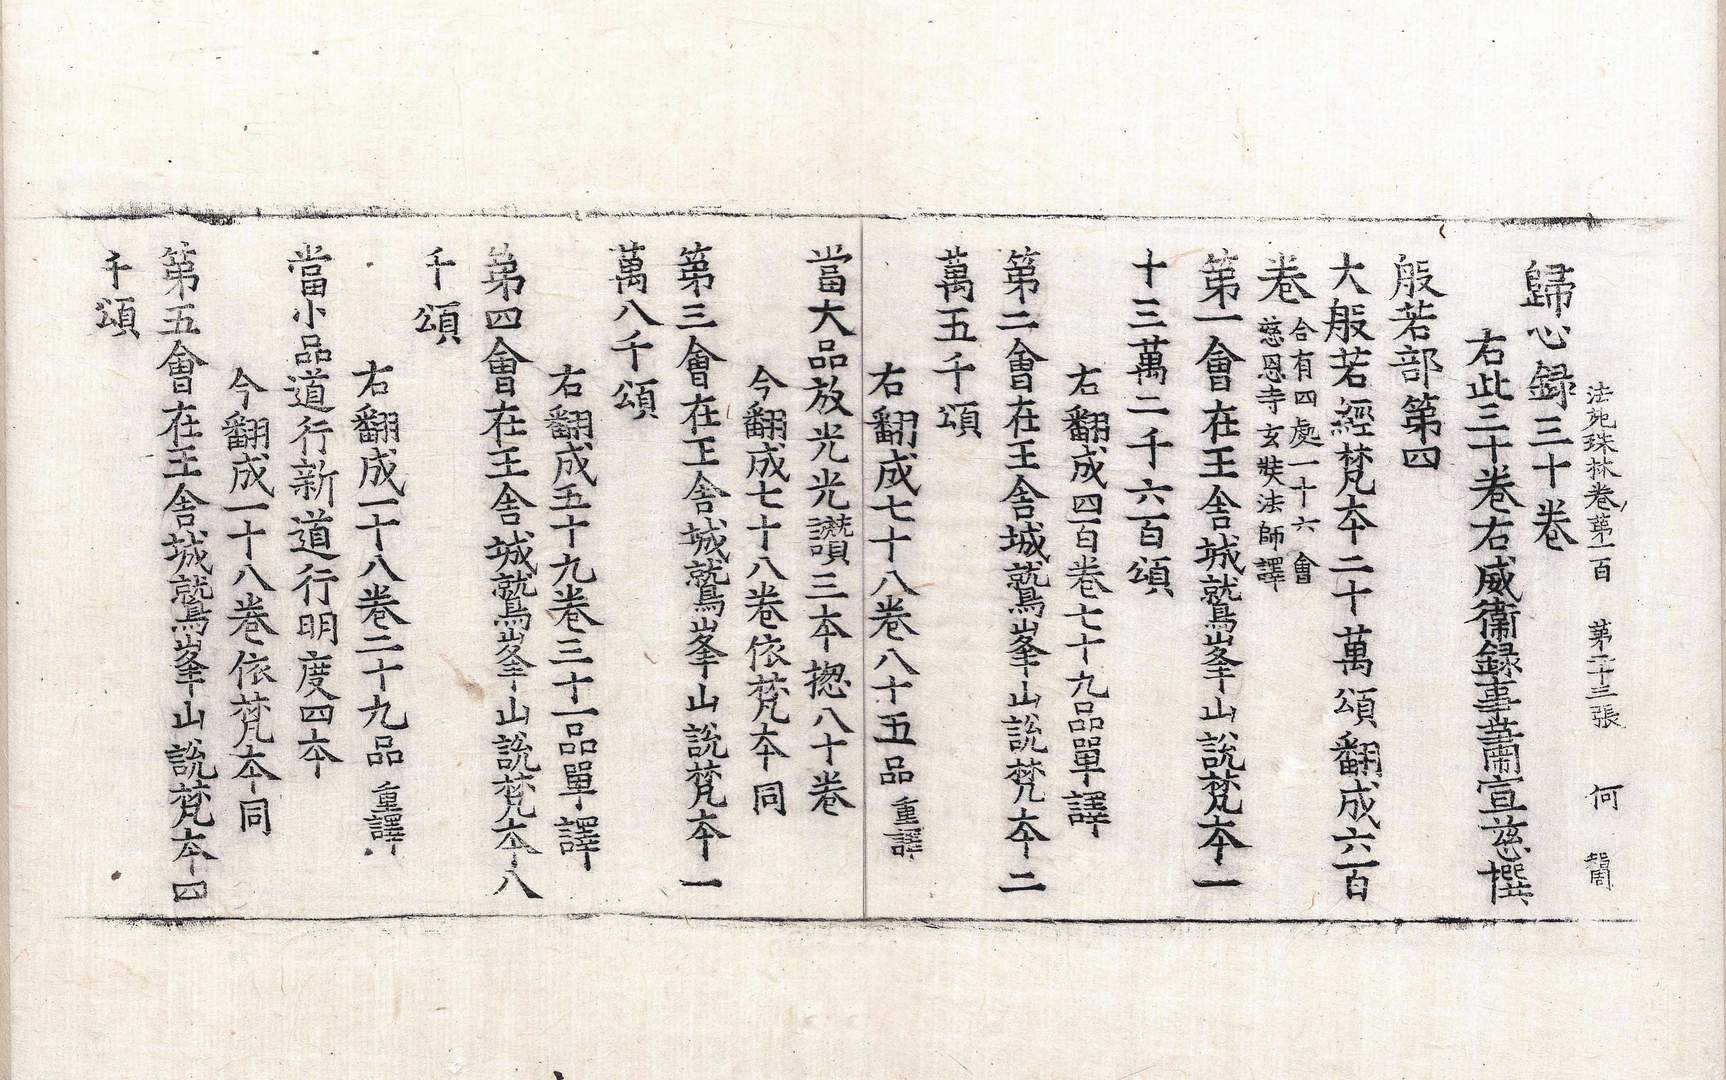 法苑珠林卷第一百 第二十三張 何
歸心録三十卷
右此三十卷右威衛録事蕭宣慈撰
般若部第四
大般若經梵本二十萬頌翻成六百
卷 合有四處一十六會
慈恩寺玄奘法師譯
第一會在王舍城鷲峯山說梵本一
十三萬二千六百頌
右翻成四百卷七十九品單譯
第二會在王舍城鷲峯山說梵本二
萬五千頌
右翻成七十八卷八十五品 重譯
當大品放光光讚三本揔八十卷
今翻成七十八卷依梵本同
第三會在王舍城鷲峯山說梵本一
萬八千頌
右翻成五十九卷三十一品單譯
第四會在王舍城鷲峯山說梵本八
千頌
右翻成一十八卷二十九品 重譯
當小品道行新道行明度四本
今翻成一十八卷依梵本同
第五會在王舍城鷲峯山說梵本四
千頌